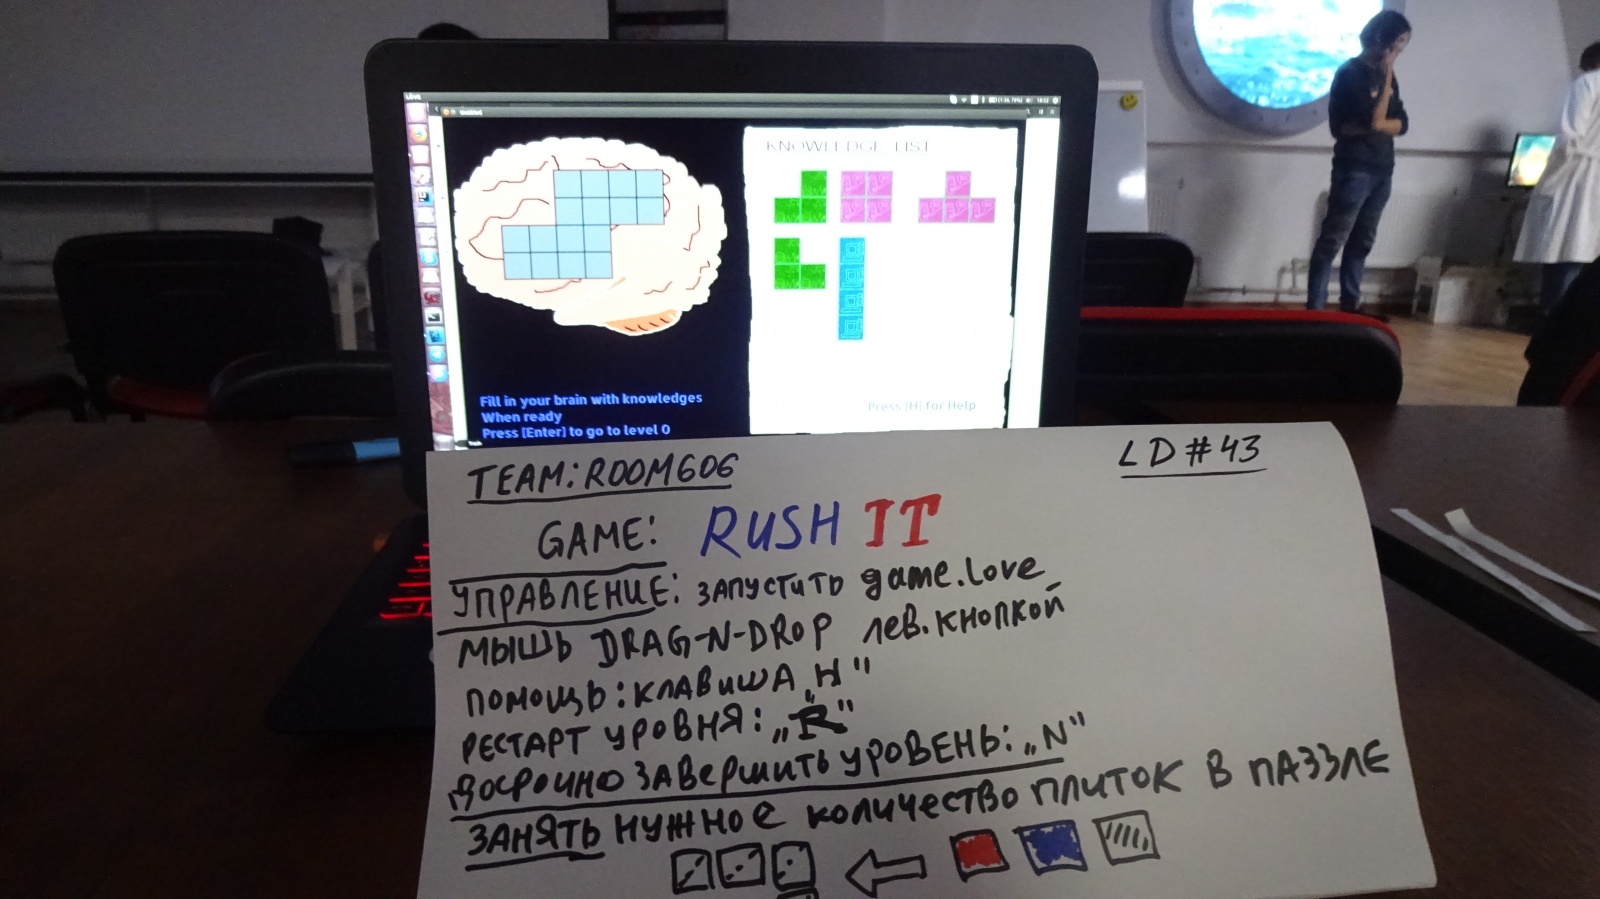 KNOWLEDGE LIST
Fill in your brain with knowledges
When ready
Press [Enter] to go to level 0
Press [H] for Help
TEAM: ROOM606
LD#43
GAME: RUSH IT
УПРАВЛЕНИЕ: ЗАПУСТИТЬ game.love
МЫШЬ DRAG-N-DROP ЛЕВ. КНОПКОЙ
ПОМОЩЬ: КЛАВИША „H"
РЕСТАРТ УРОВНЯ: „R"
ДОСРОЧНО ЗАВЕРШИТЬ УРОВЕНЬ: „N"
ЗАНЯТЬ НУЖНОЕ КОЛИЧЕСТВО ПЛИТОК В ПАЗЗЛЕ